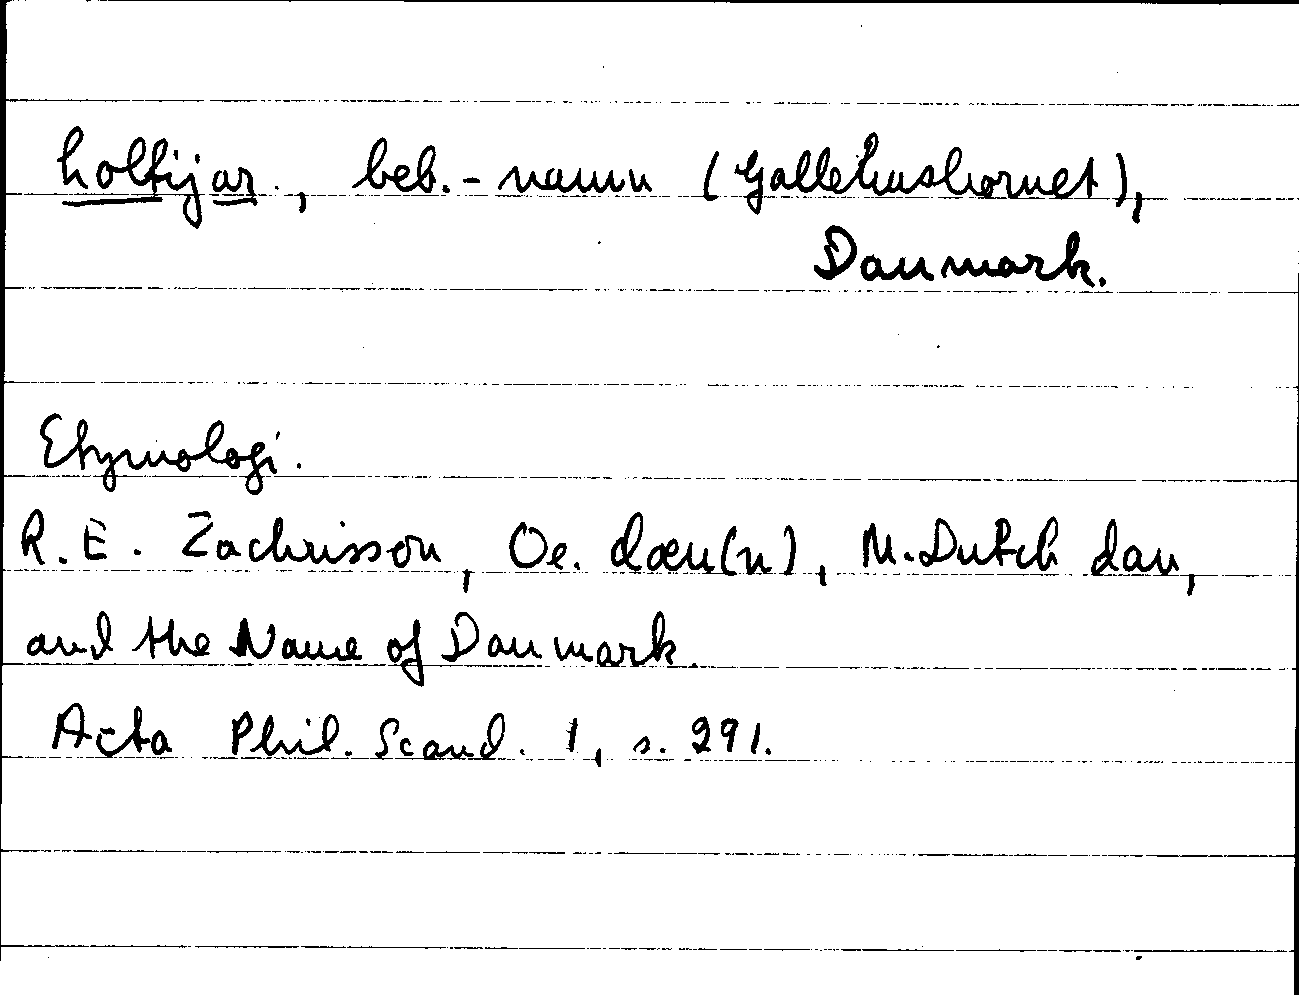 holtijar., beb.-namn (Gallehushornet),
Danmark.
Etymologi.
R.E. Zachrisson, Oe. dæn(n), M.Dutch dan,
and the Name of Danmark.
Acta Phil. Scand. 1, s. 291.